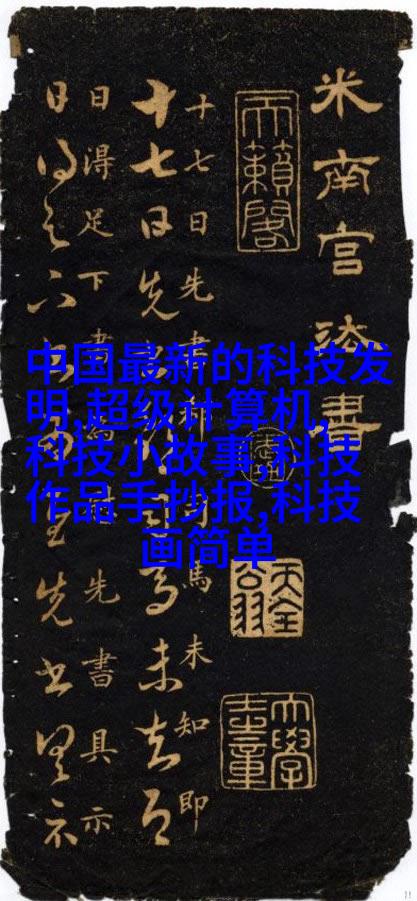 米南宫法書
天籟閣
十七日先書馬未知即
十七日先未去即
日得足下書先書具示
日得足下先書具示
中国最新的科技发
明,超级计算机,
科技小故事,科技
作品手抄报,科技
画简单